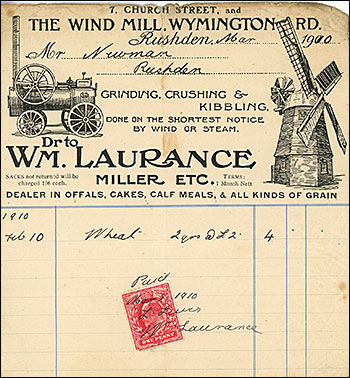 7, CHURCH STREET, and
THE WIND MILL, WYMINGTON RD.
Rushden, Mar 1910
Mr Newman
Rushden
GRINDING, CRUSHING &
KIBBLING,
DONE ON THE SHORTEST NOTICE
BY WIND OR STEAM.
Dr to
WM. LAURANCE
SACKS not returned will be
charged 1/6 each.
MILLER ETC.
TERMS:
1 Month Nett
DEALER IN OFFALS, CAKES, CALF MEALS, & ALL KINDS OF GRAIN
1910
Feb 10 Wheat 2 qrs @ £2. 4
Paid
1910
Wm Laurance
ONE PENNY